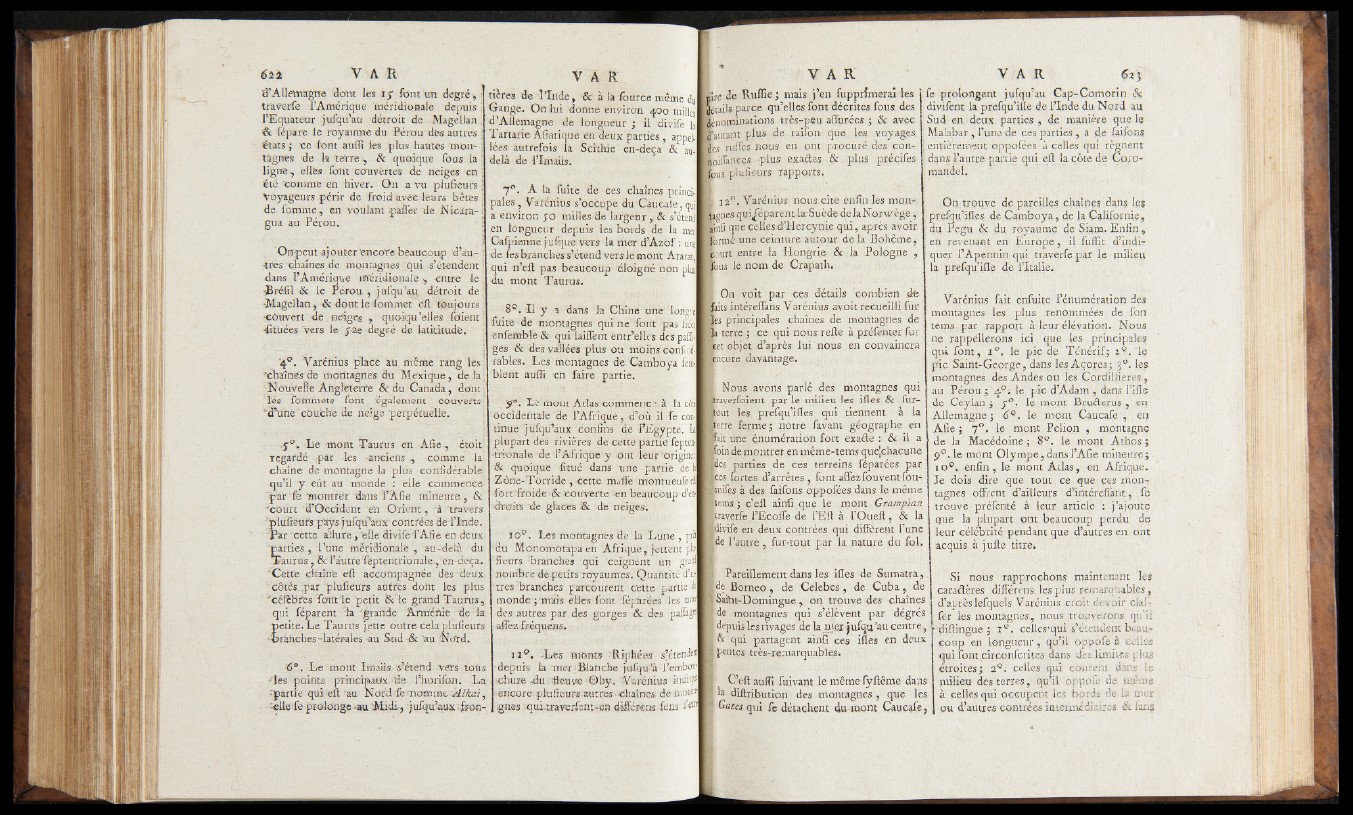 622 V A R
d'Allemagne dont les 15 font un degré,
traverfe l'Amérique méridionale depuis
l'Equateur jufqu'au détroit de Magellan
& fépare le royaume du Pérou des autres
états ; ce font auffi les plus hautes mon-
tagnes de la terre, & quoique fous la
ligne, elles font couvertes de neiges en
été comme en hiver. On a vu plufieurs
voyageurs périr de froid avec leurs bêtes
de fomme, en voulant paffer de Nicara-
gua au Pérou.
On peut ajouter encore beaucoup d'au-
tres chaînes de montagnes qui s'étendent
dans l'Amérique méridionale, entre le
Bréfil & le Pérou, jufqu'au détroit de
Magellan, & dont le fommet eft toujours
couvert de neiges, quoiqu'elles foient
fituées vers le 52e degré de latitude.
4°. Varénius place au même rang les
chaînes de montagnes du Mexique, de la
Nouvelle Angleterre & du Canada, dont
les fommets font également couverts
d'une couche de neige perpétuelle.
5°. Le mont Taurus en Afie, étoit
regardé par les anciens, comme la
chaîne de montagne la plus confidérable
qu'il y eût au monde : elle commence
par fe montrer dans l'Afie mineure, &
court d'Occident en Orient, à travers
plufieurs pays jufqu'aux contrées de l'Inde.
Par cette allure, elle divife l'Afie en deux
parties, l'une méridionale, au-delà du
Taurus, & l'autre feptentrionale, en-deçà.
Cette chaîne eft accompagnée des deux
côtés par plufieurs autres dont les plus
célèbres font le petit & le grand Taurus,
qui féparent la grande Arménie de la
petite. Le Taurus jette outre cela plufieurs
branches latérales au Sud & au Nord.
6°. Le mont Imaüs s'étend vers tous
les points principaux de l'horifon. La
partie qui eft au Nord fe nomme Alkai,
elle fe prolonge au Midi, jufqu'aux fron-
V A R
tières de l'Inde, & à la fource même du
Gange. On lui donne environ 400 milles
d'Allemagne de longueur ; il divife la
Tartarie Afiatique en deux parties, appel-
lées autrefois la Scithie en-deçà & au-
delà de l'Imaüs.
7°. A la fuite de ces chaînes princi-
pales, Varénius s'occupe du Caucafe, qui
a environ 50 milles de largeur, & s'étend
en longueur depuis les bords de la mer
Cafpienne jufque vers la mer d'Azof : une
de fes branches s'étend vers le mont Ararat,
qui n'eft pas beaucoup éloigné non plus
du mont Taurus.
8°. Il y a dans la Chine une longue
fuite de montagnes qui ne font pas liées
enfemble & qui laiffent entr'elles des paffa-
ges & des vallées plus ou moins confidé-
rables. Les montagnes de Camboya fem-
blent auffi en faire partie.
9°. Le mont Atlas commence à la côte
occidentale de l'Afrique, d'où il fe con-
tinue jufqu'aux confins de l'Egypte. La
plupart des rivières de cette partie fepten-
trionale de l'Afrique y ont leur origine :
& quoique fitué dans une partie de la
Zône-Torride, cette maffe montueufe eft
fort froide & couverte en beaucoup d'en-
droits de glaces & de neiges.
10°. Les montagnes de la Lune, près
du Monomotapa en Afrique, jettent plu-
fieurs branches qui ceignent un grand
nombre de petits royaumes. Quantité d'au-
tres branches parcourent cette partie du
monde ; mais elles font féparées les unes
des autres par des gorges & des paffages
affez fréquens.
11°. Les monts Riphées s'étendent
depuis la mer Blanche jufqu'à l'embou-
chure du fleuve Oby. Varénius indique
encore plufieurs autres chaînes de monta-
gnes qui traverfent en différens fens
V A R
de Ruffie ; mais j'en fupprimerai les
détails parce qu'elles font décrites fous des
dénominations très-peu affurées ; & avec
d'autant plus de raifon que les voyages
des ruffes nous en ont procuré des con-
noiffances plus exactes & plus précifes
fous plufieurs rapports.
12°. Varénius nous cite enfin les mon-
tagnes qui féparent la Suède de la Norwège,
ainfi que celles d'Hercynie qui, après avoir
formé une ceinture autour de la Bohême,
court entre la Hongrie & la Pologne,
fous le nom de Crapath.
On voit par ces détails combien de
faits intéreffans Varénius avoit recueilli fur
les principales chaînes de montagnes de
la terre ; ce qui nous refte à préfenter fur
cet objet d'après lui nous en convaincra
encore davantage.
Nous avons parlé des montagnes qui
traverfoient par le milieu les ifles & fur-
tout les prefqu'ifles qui tiennent à la
terre ferme ; notre favant géographe en
fait une énumération fort exacte : & il a
foin de montrer en même-tems que chacune
des parties de ces terreins féparées par
ces fortes d'arrêtes, font affez fouvent fou-
mifes à des faifons oppofées dans le même
tems ; c'eft ainfi que le mont Grampian
traverfe l'Ecoffe de l'Eft à l'Oueft, & la
divife en deux contrées qui diffèrent l'une
de l'autre, fur-tout par la nature du fol.
Pareillement dans les ifles de Sumatra,
de Borneo, de Celebes, de Cuba, de
Saint-Domingue, on trouve des chaînes
de montagnes qui s'élèvent par dégrés
depuis les rivages de la mer jufqu'au centre,
& qui partagent ainfi ces ifles en deux
pentes très-remarquables.
C'eft auffi fuivant le même fyftême dans
la diftribution des montagnes, que les
Gates qui fe détachent du mont Caucafe,
V A R 623
fe prolongent jufqu'au Cap-Comorin &
divifent la prefqu'ifle de l'Inde du Nord au
Sud en deux parties, de manière que le
Malabar, l'une de ces parties, a de faifons
entièrement oppofées à celles qui règnent
dans l'autre partie qui eft la côte de Coro-
mandel.
On trouve de pareilles chaînes dans les
prefqu'ifles de Camboya, de la Californie,
du Pegu & du royaume de Siam. Enfin,
en revenant en Europe, il fuffit d'indi-
quer l'Apennin qui traverfe par le milieu
la prefqu'ifle de l'Italie.
Varénius fait enfuite l'énumération des
montagnes les plus renommées de fon
tems par rapport à leur élévation. Nous
ne rappellerons ici que les principales
qui font, 1°. le pic de Ténérif ; 2°. le
pic Saint-George, dans les Açores ; 3°. les
montagnes des Andes ou les Cordillieres,
au Pérou ; 4°. le pic d'Adam, dans l'ifle
de Ceylan ; 5°. le mont Bructerus, en
Allemagne ; 6°. le mont Caucafe, en
Afie ; 7°. le mont Pelion, montagne
de la Macédoine ; 8°. le mont Athos ;
9°. le mont Olympe, dans l'Afie mineure ;
10°. enfin, le mont Atlas, en Afrique.
Je dois dire que tout ce que ces mon-
tagnes offrent d'ailleurs d'intéreffant, fe
trouve préfenté à leur article : j'ajoute
que la plupart ont beaucoup perdu de
leur célébrité pendant que d'autres en ont
acquis à jufte titre.
Si nous rapprochons maintenant les
caractères différens les plus remarquables,
d'après lefquels Varénius croit devoir claf-
fer les montagnes, nous trouverons qu'il
diftingue ; 1°. celles qui s'étendent beau-
coup en longueur, qu'il oppofe à celles
qui font circonfcrites dans des limites plus
étroites ; 2°. celles qui courent dans le
milieu des terres, qu'il oppofe de même
à celles qui occupent les bords de la mer
ou d'autres contrées intermédiaires & fans